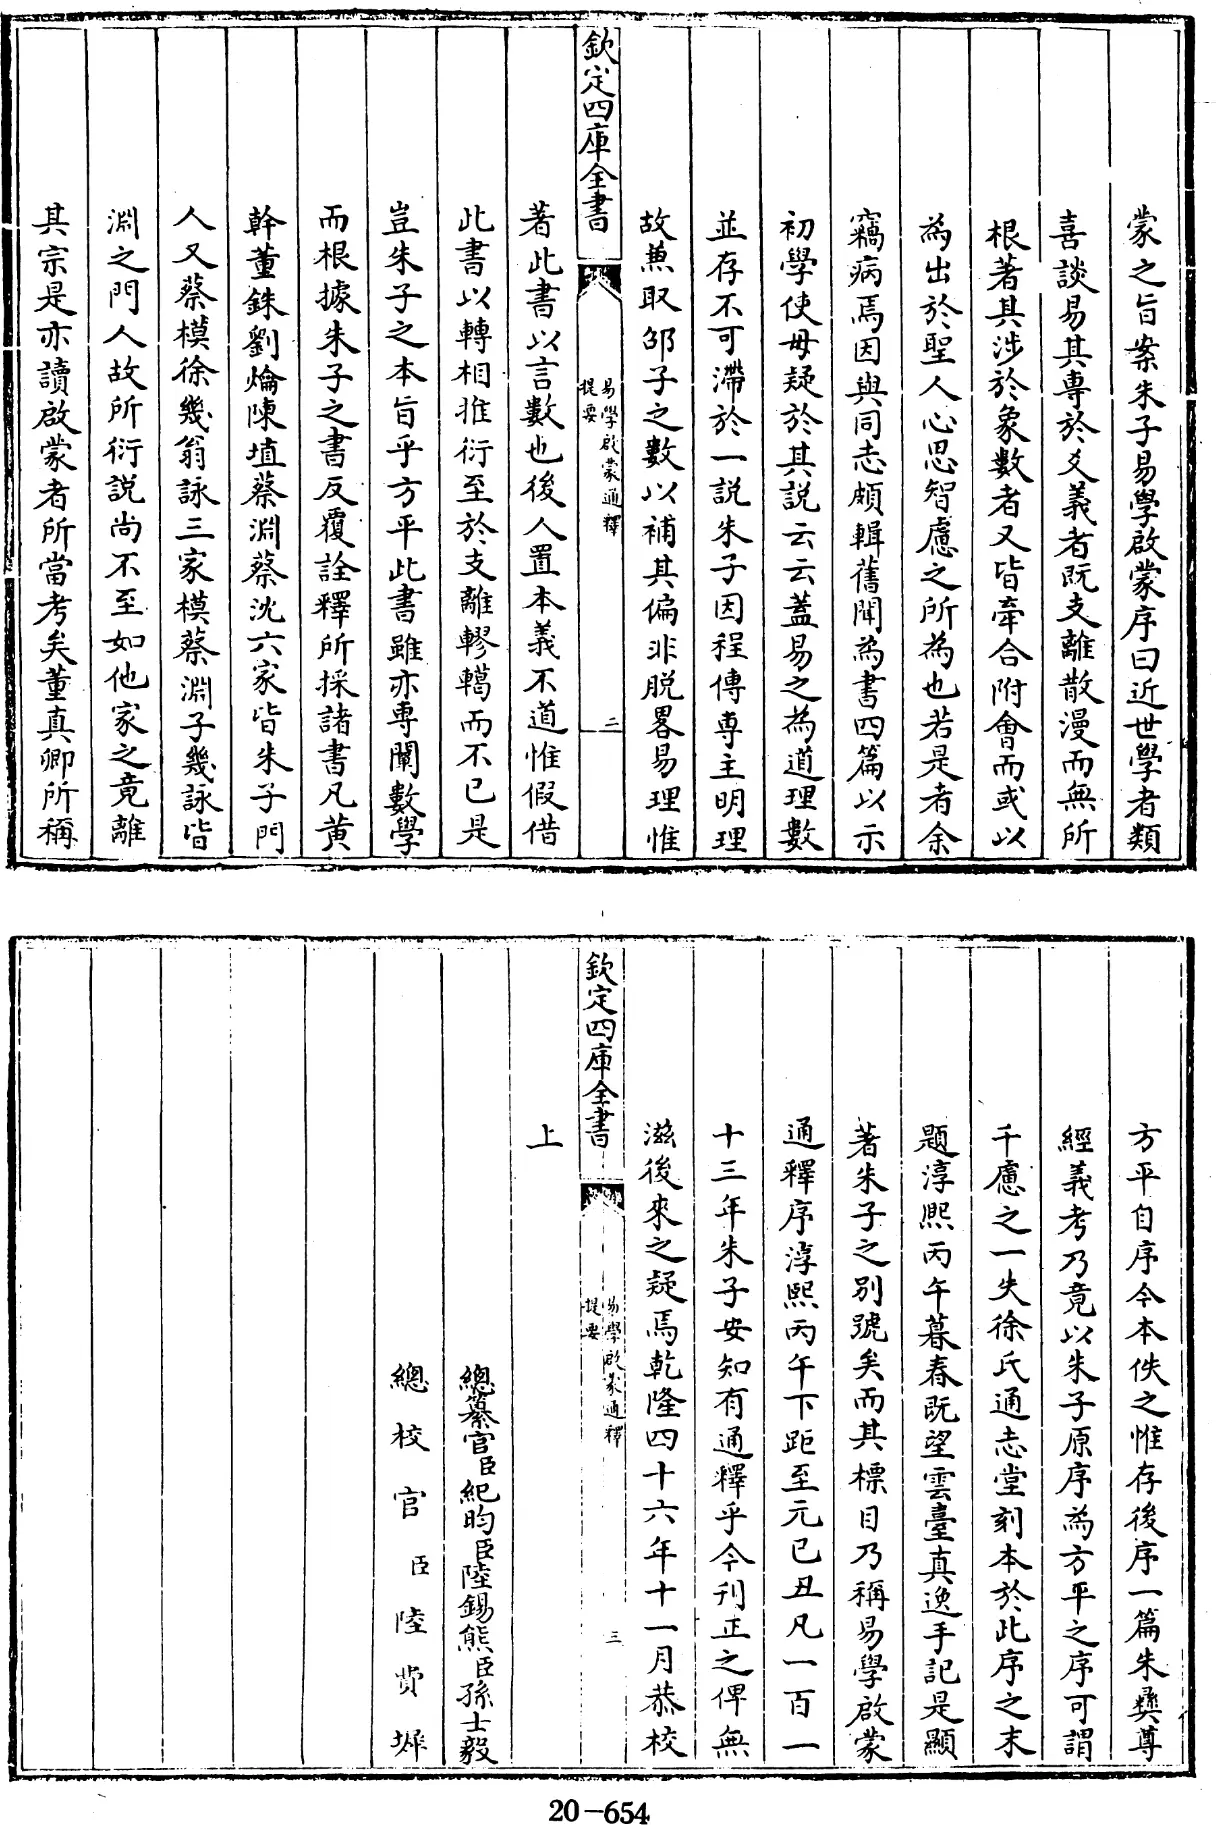 蒙之旨案朱子易學啟蒙序曰近世學者類
喜談易其專於爻義者既支離散漫而無所
根著其涉於象數者又皆牽合附會而或以
為出於聖人心思智慮之所為也若是者余
竊病焉因與同志頗輯舊聞為書四篇以示
初學使毋疑於其説云云蓋易之為道理數
並存不可滯於一説朱子因程傳專主明理
故兼取邵子之數以補其偏非脱畧易理惟
欽定四庫全書
易學啟蒙通釋
提要
二
著此書以言數也後人置本義不道惟假借
此書以轉相推衍至於支離轇轕而不已是
豈朱子之本旨乎方平此書雖亦專闡數學
而根據朱子之書反覆詮釋所採諸書凡黃
榦董銖劉爚陳埴蔡淵蔡沈六家皆朱子門
人又蔡模徐幾翁詠三家模蔡淵子幾詠皆
淵之門人故所衍説尚不至如他家之竟離
其宗是亦讀啟蒙者所當考矣董真卿所稱
方平自序今本佚之惟存後序一篇朱彝尊
經義考乃竟以朱子原序為方平之序可謂
千慮之一失徐氏通志堂刻本於此序之末
題淳熙丙午暮春既望雲臺真逸手記是顯
著朱子之別號矣而其標目乃稱易學啟蒙
通釋序淳熙丙午下距至元己丑凡一百一
十三年朱子安知有通釋乎今刋正之俾無
滋後來之疑焉乾隆四十六年十一月恭校
欽定四庫全書
易學啟蒙通釋
提要
三
上
總纂官臣紀昀臣陸錫熊臣孫士毅
總校官臣陸費墀
20-654